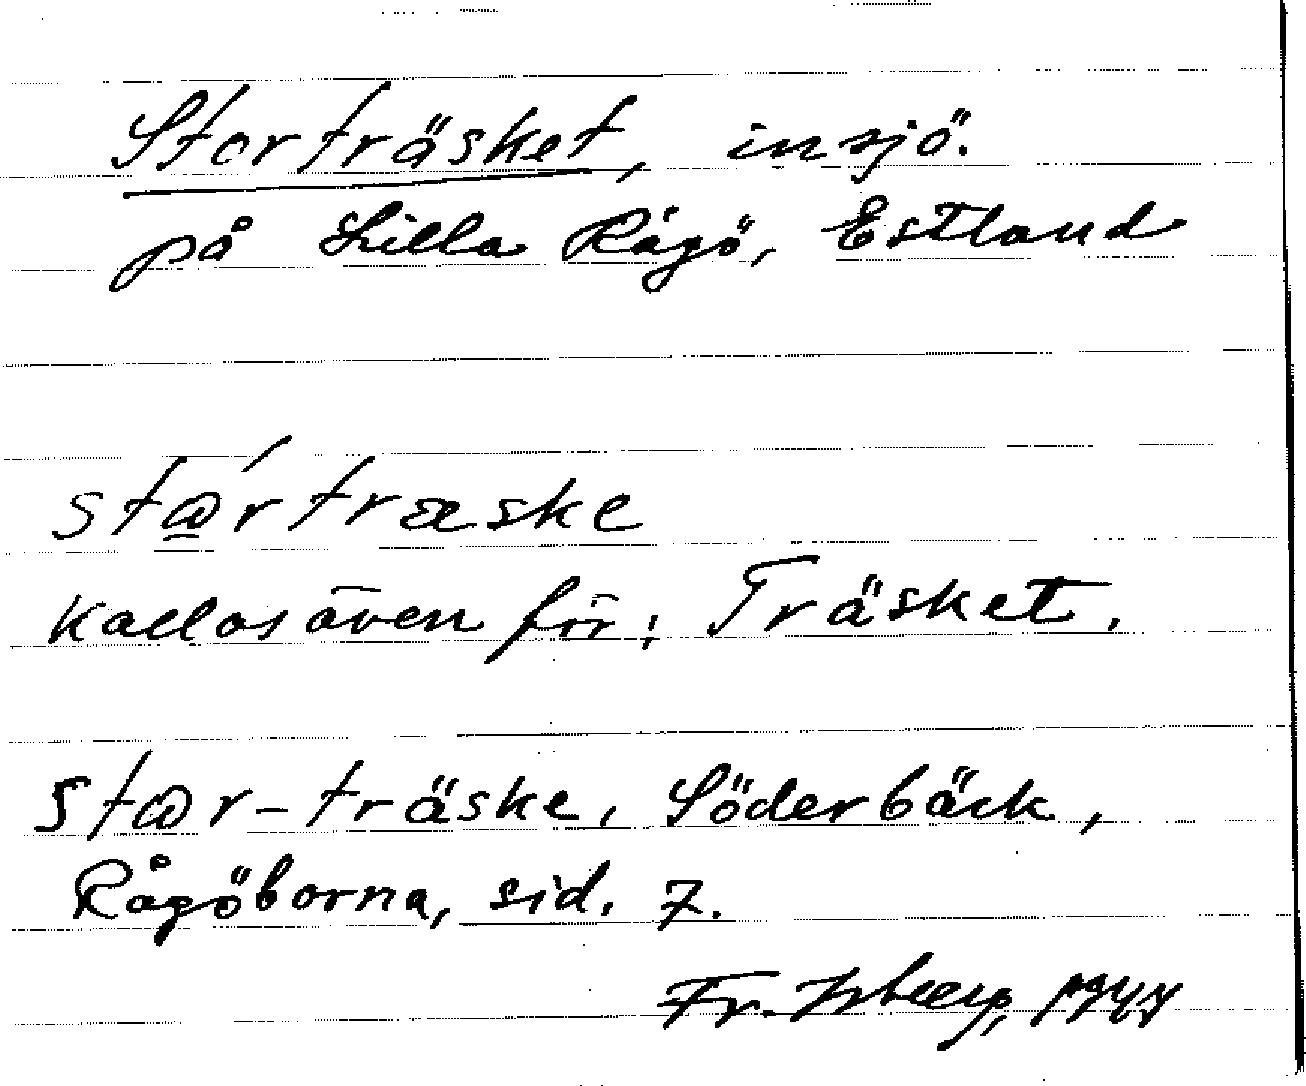 Storträsket, insjö.
på Lilla Rågö, Estland
stώ̲rtræske
Kallas även för: Träsket.
stωr-träske, Söderbäck,
Rågöborna, sid. 7.
Fr. 1944